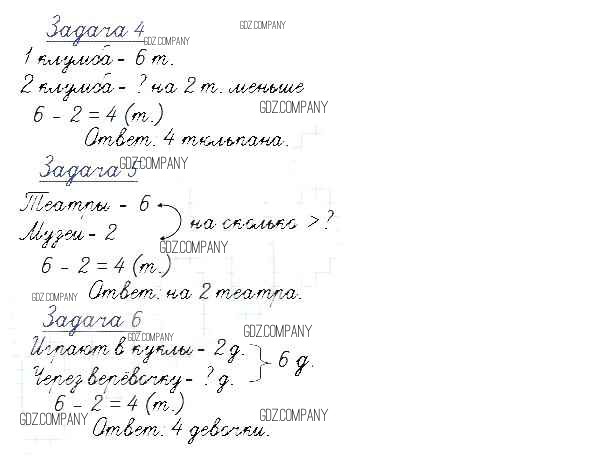 Задача 4
GDZ.COMPANY
GDZ.COMPANY
1 клумба - 6 т.
2 клумба - ? на 2 т. меньше
6 - 2 = 4 (т.)
GDZ.COMPANY
Ответ: 4 тюльпана.
Задача 5
GDZ.COMPANY
Театры - 6
на сколько > ?
Музеи - 2
GDZ.COMPANY
6 - 2 = 4 (т.)
GDZ.COMPANY
Ответ: на 2 театра.
Задача 6
GDZ.COMPANY
GDZ.COMPANY
Играют в куклы - 2 д.
6 д.
Через верёвочку - ? д.
6 - 2 = 4 (т.)
GDZ.COMPANY
GDZ.COMPANY
Ответ: 4 девочки.